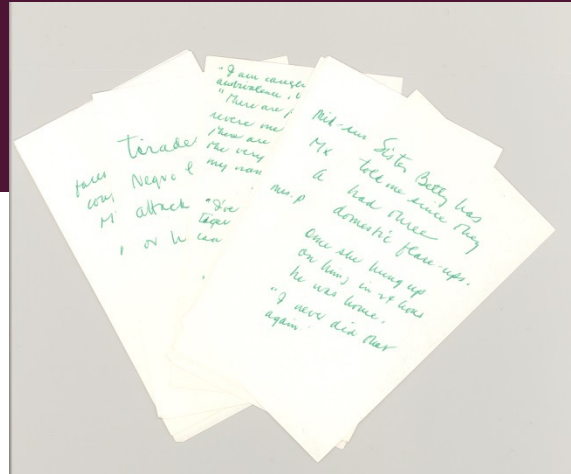 Tirade
Negro
attack
or he can
"I am
ambivalence,
"There are
revere me
There are
the very
my nam
"I've
Sister Betty has
MX told me since they
had three
domestic flare-ups.
Once she hung up
on him; in 24 hours
he was home.
"I never did that
again.